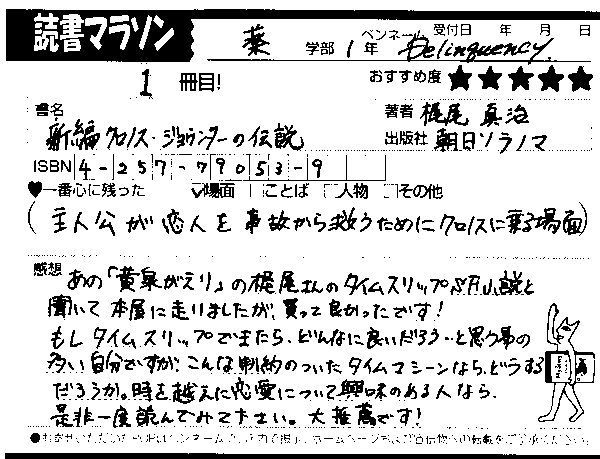 読書マラソン
薬 学部 1年 ペンネーム Delinquency. 受付日 年 月 日
1 冊目! おすすめ度 ★★★★★
書名 新編クロノス・ジョウンターの伝説
著者 梶尾 真治
出版社 朝日ソノラマ
ISBN 4-257-79053-9
♥一番心に残った ✓場面 □ことば □人物 □その他
(主人公が恋人を事故から救うためにクロノスに乗る場面)
感想 あの「黄泉がえり」の梶尾さんのタイムスリップSF小説と
聞いて本屋に走りましたが、買って良かったです!
もしタイムスリップできたら、どんなに良いだろう…と思う事の
多い自分ですが、こんな制約のついたタイムマシーンなら、どうする
だろうか。時を越えた恋愛について興味のある人なら、
是非一度読んでみて下さい。大推薦です!